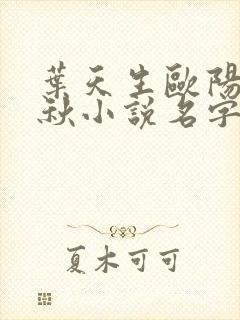 葉天生歐陽
秋小說名字
夏木可可